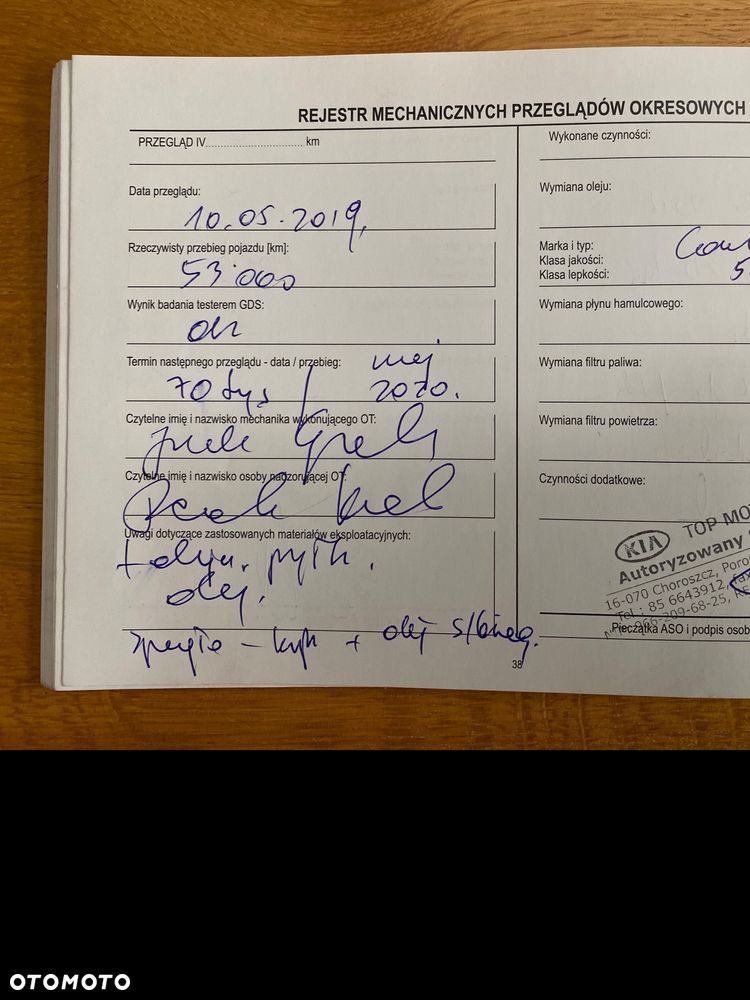 REJESTR MECHANICZNYCH PRZEGLĄDÓW OKRESOWYCH
PRZEGLĄD IV................................ km
Data przeglądu:
10.05.2019,
Rzeczywisty przebieg pojazdu [km]:
53.000
Wynik badania testerem GDS:
Termin następnego przeglądu - data / przebieg:
70 tys / maj 2020.
Czytelne imię i nazwisko mechanika wykonującego OT:
Czytelne imię i nazwisko osoby nadzorującej OT:
Uwagi dotyczące zastosowanych materiałów eksploatacyjnych:
olej.
+ olej s/bieg.
38
Wykonane czynności:
Wymiana oleju:
Marka i typ:
Klasa jakości:
Klasa lepkości: 5
Wymiana płynu hamulcowego:
Wymiana filtru paliwa:
Wymiana filtru powietrza:
Czynności dodatkowe:
KIA TOP MO
Autoryzowany
16-070 Choroszcz, Poro
Tel.: 85 6643912, fax
966-209-68-25, RE
Pieczątka ASO i podpis osob
OTOMOTO